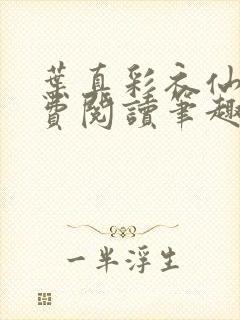 葉真彩衣仙
費閱讀筆趣
一半浮生